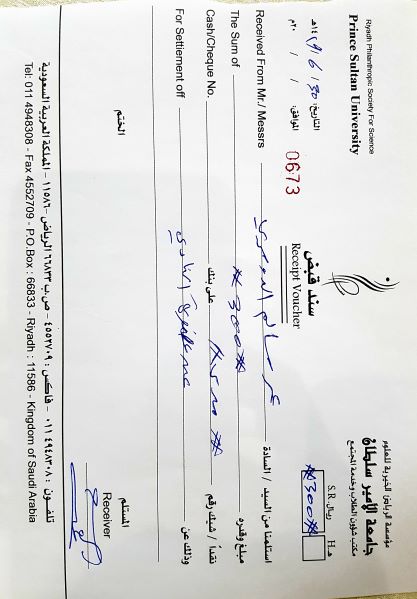 Riyadh Philanthropic Society For Science
Prince Sultan University
مؤسسة الرياض الخيرية للعلوم
جامعة الأمير سلطان
مكتب شؤون الطلاب وخدمة المجتمع
سند قبض
Receipt Voucher
هـ. H ريال S.R.
#300#
التاريخ: 30 / 6 / 1429هـ
الموافق: / / ٢٠م
0673
Received From Mr./ Messrs استلمنا من السيد / السادة
The Sum of #300# مبلغ وقدره
Cash/Cheque No. على بنك نقداً / شيك رقم
For Settlement off وذلك عن
الختم
المستلم
Receiver
تلفون: ٠١١ ٤٩٤٨٣٠٨ - فاكس: ٤٥٥٢٧٠٩ - ص.ب ٦٦٨٣٣ الرياض ١١٥٨٦ - المملكة العربية السعودية
Tel: 011 4948308 - Fax 4552709 - P.O.Box : 66833 - Riyadh : 11586 - Kingdom of Saudi Arabia